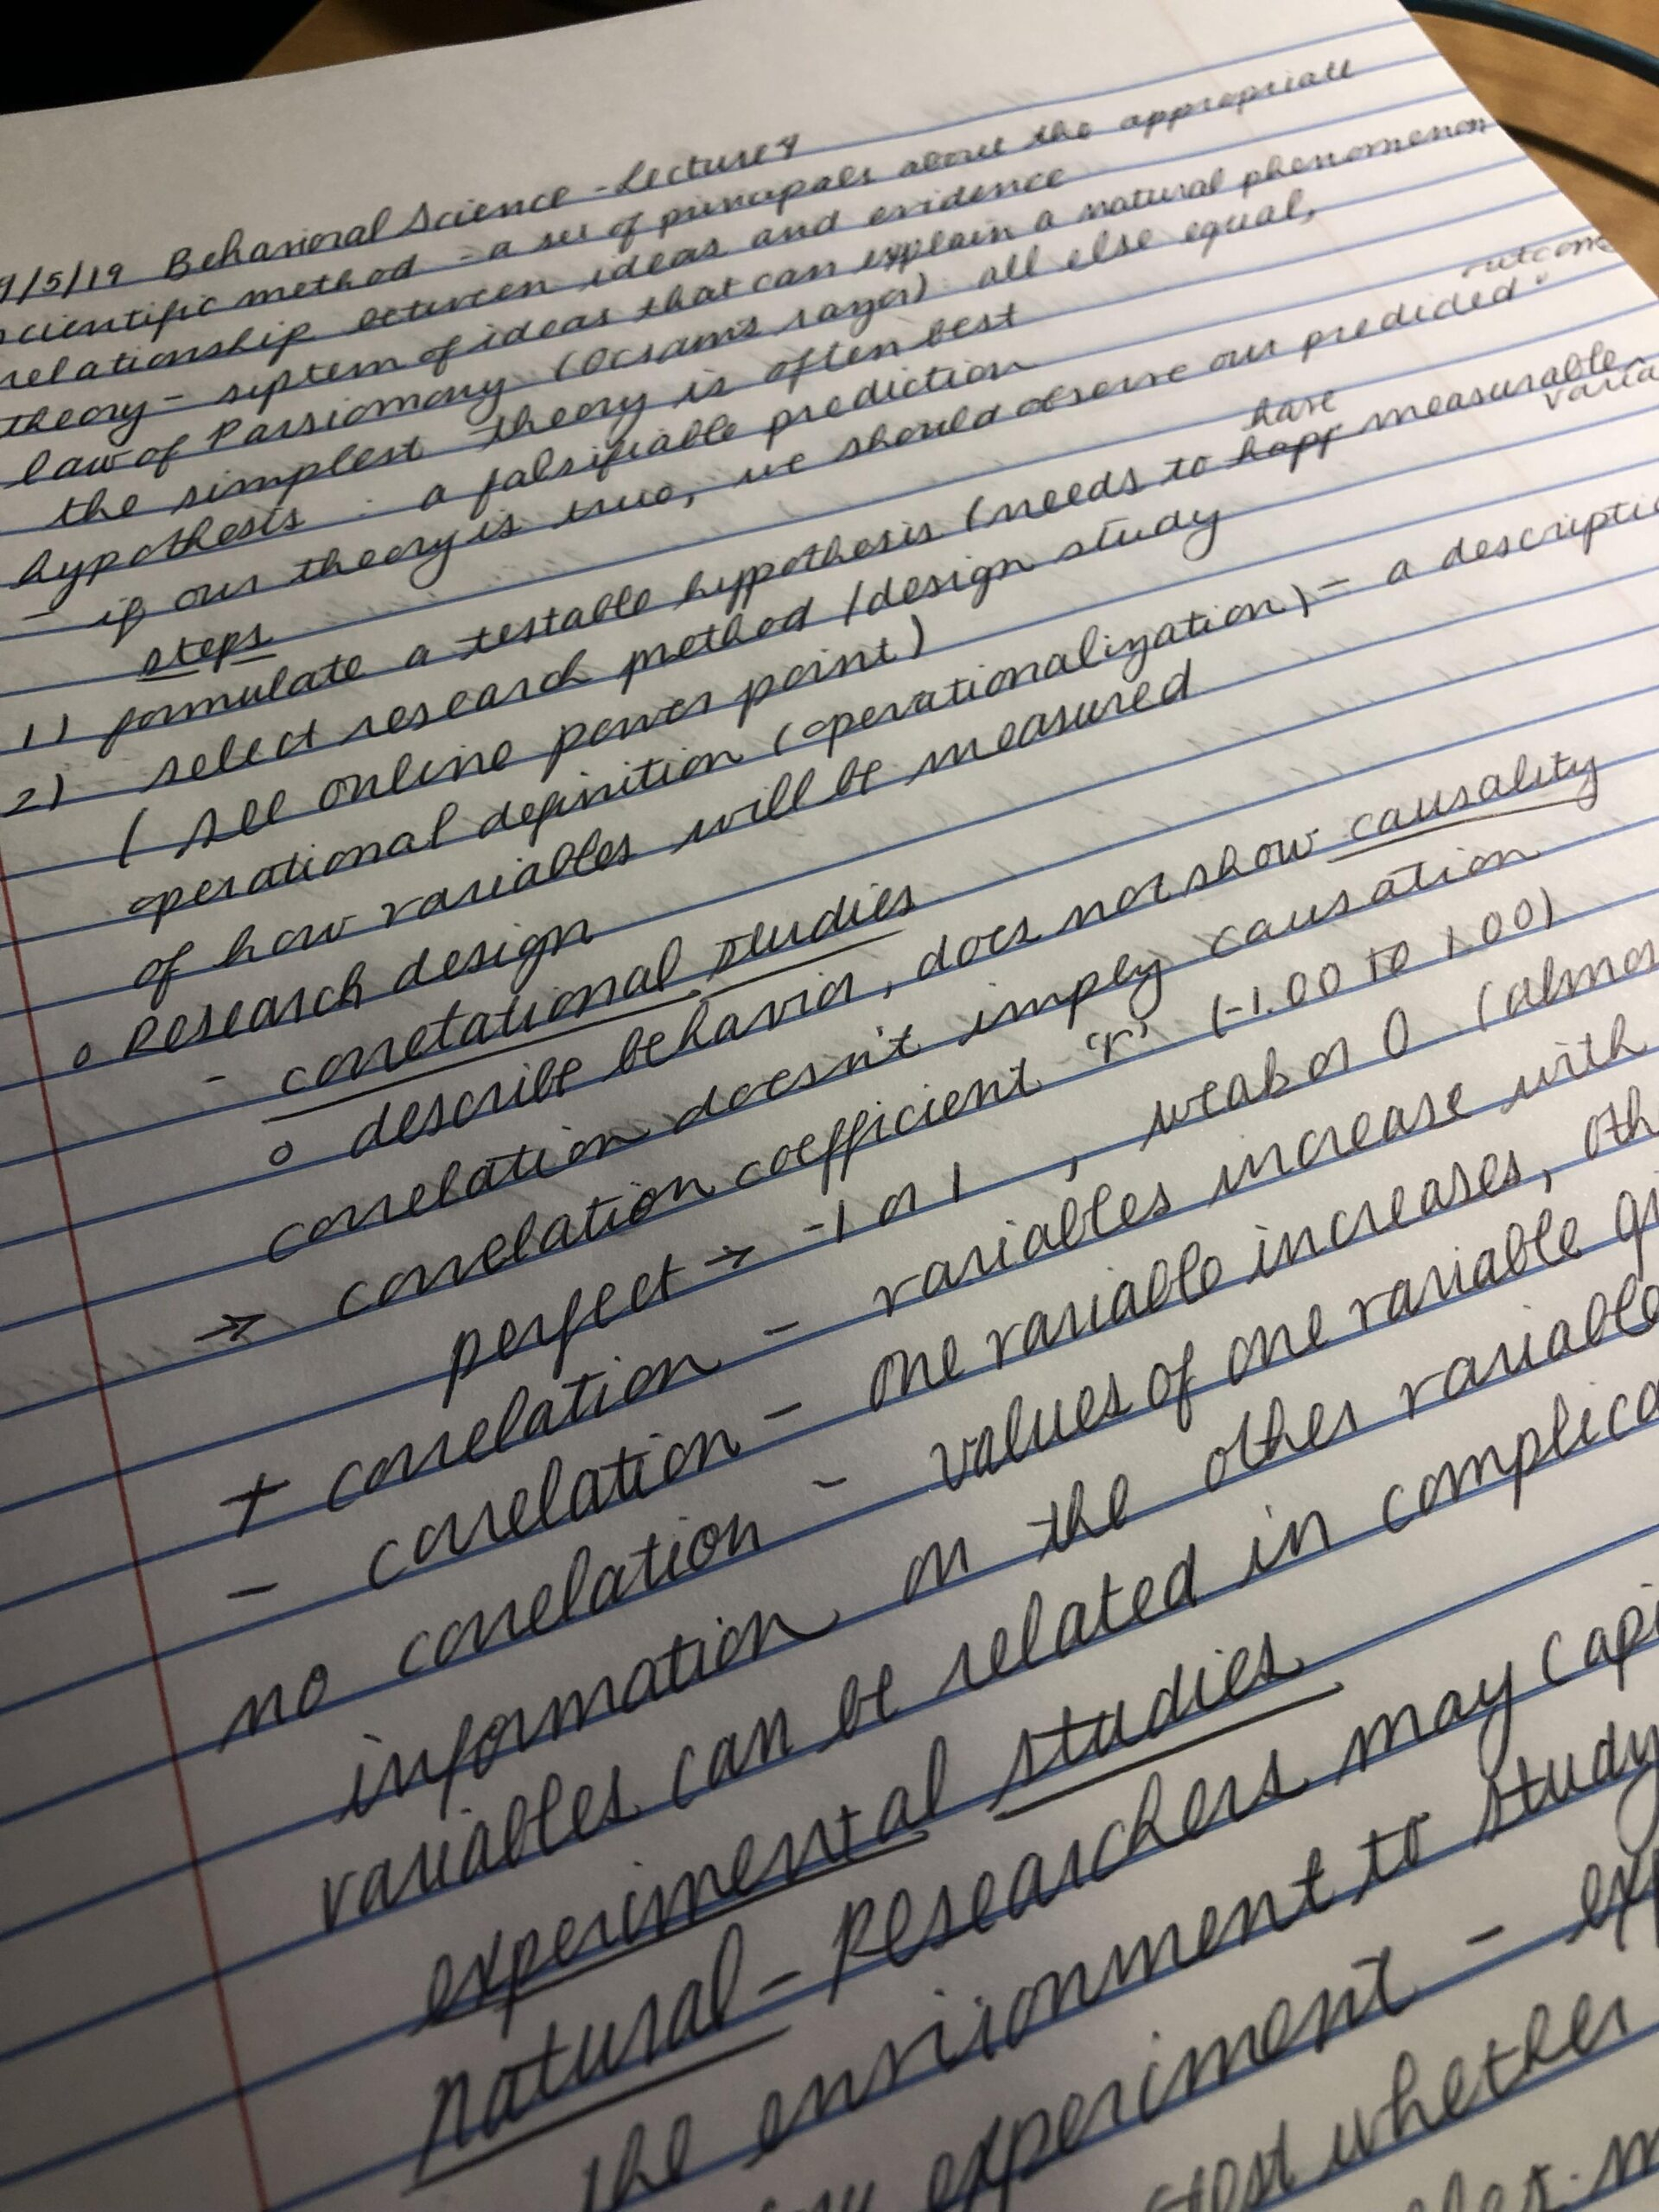 9/5/19 Behavioral Science - Lecture 4
scientific method - a set of principals about the appropriate
relationship between ideas and evidence
theory - system of ideas that can explain a natural phenomenon
law of Parsiomony (Occam's razor) all else equal,
the simplest theory is often best
hypothesis : a falsifiable prediction
- if our theory is true, we should observe our predicted outcome
steps
1) formulate a testable hypothesis (needs to have measurable varia
2) select research method / design study
( See online power point)
operational definition (operationalization) - a descriptio
of how variables will be measured
o Research design
- correlational studies
o describe behavior, does not show causality
correlation doesn't imply causation
→ correlation coefficient "r" (-1.00 to 1.00)
perfect → -1 or 1 , weak or 0 (almos
+ correlation - variables increase with
- correlation - one variable increases, oth
no correlation - values of one variable gi
information on the other variable
variables can be related in complica
experimental studies
natural - Researchers may capi
the environment to study
experiment - exp
test whether